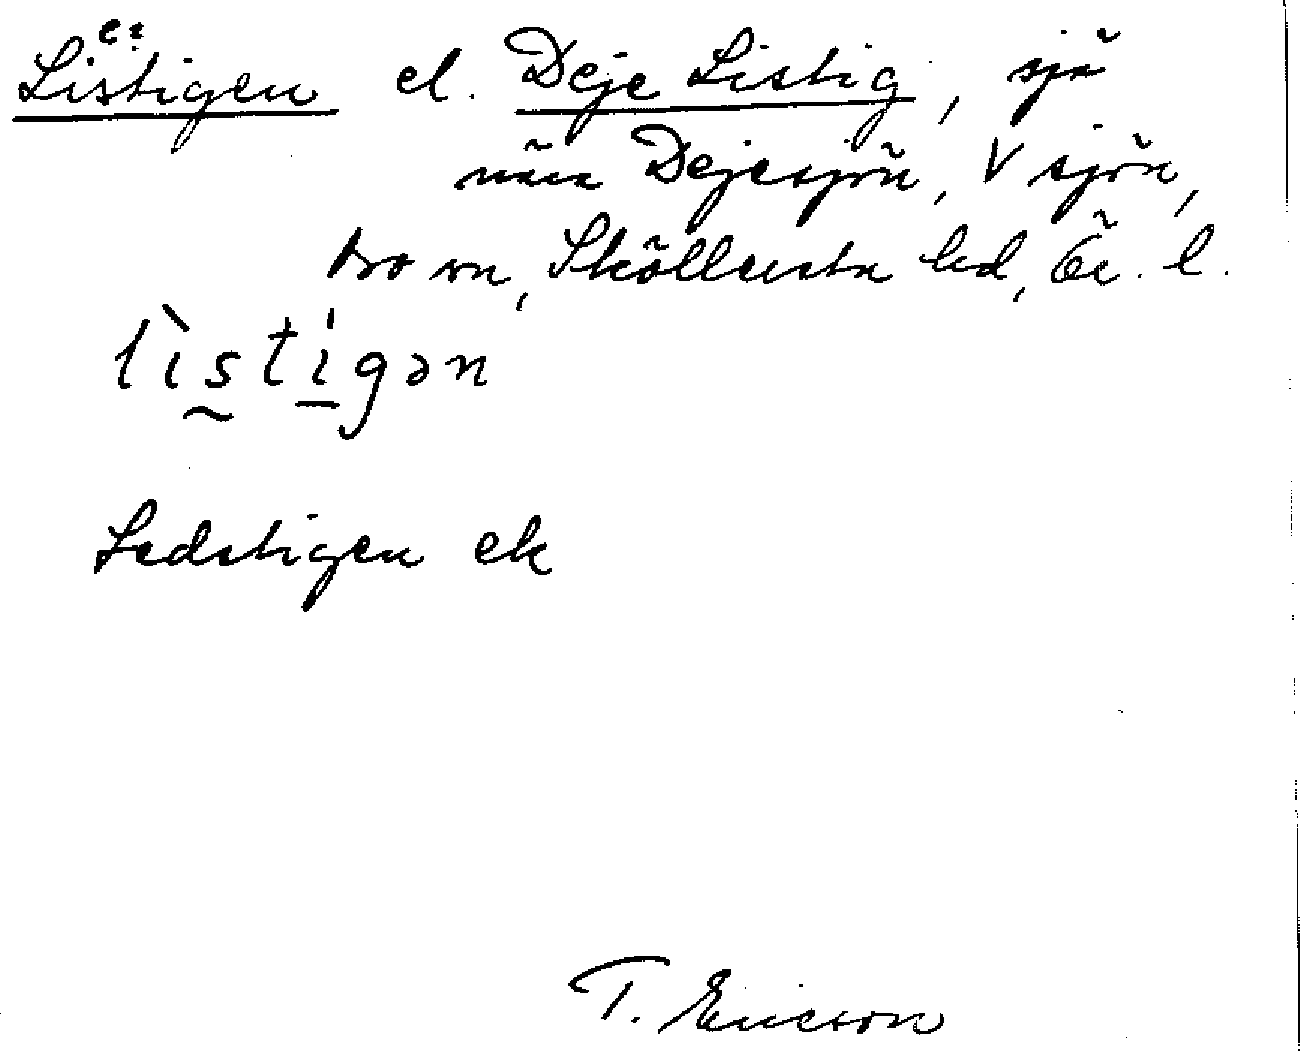 Listigen el. Deje Listig, sjö
nära Dejesjön, V sjön,
Sköllersta hd, Ör. l.
lìstigən
Ledstigen ek
T. Ericson